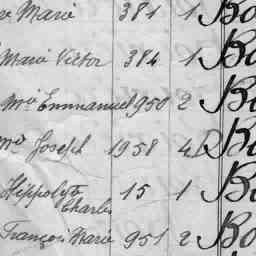 Marie 381 1 Bo
Marie Victor 384 1 Bo
Mie Emmanuel 950 2 Bo
Mie Joseph 1958 4 D Bo
Hippolyte Charles 15 1 Bo
François Marie 951 2 Bo